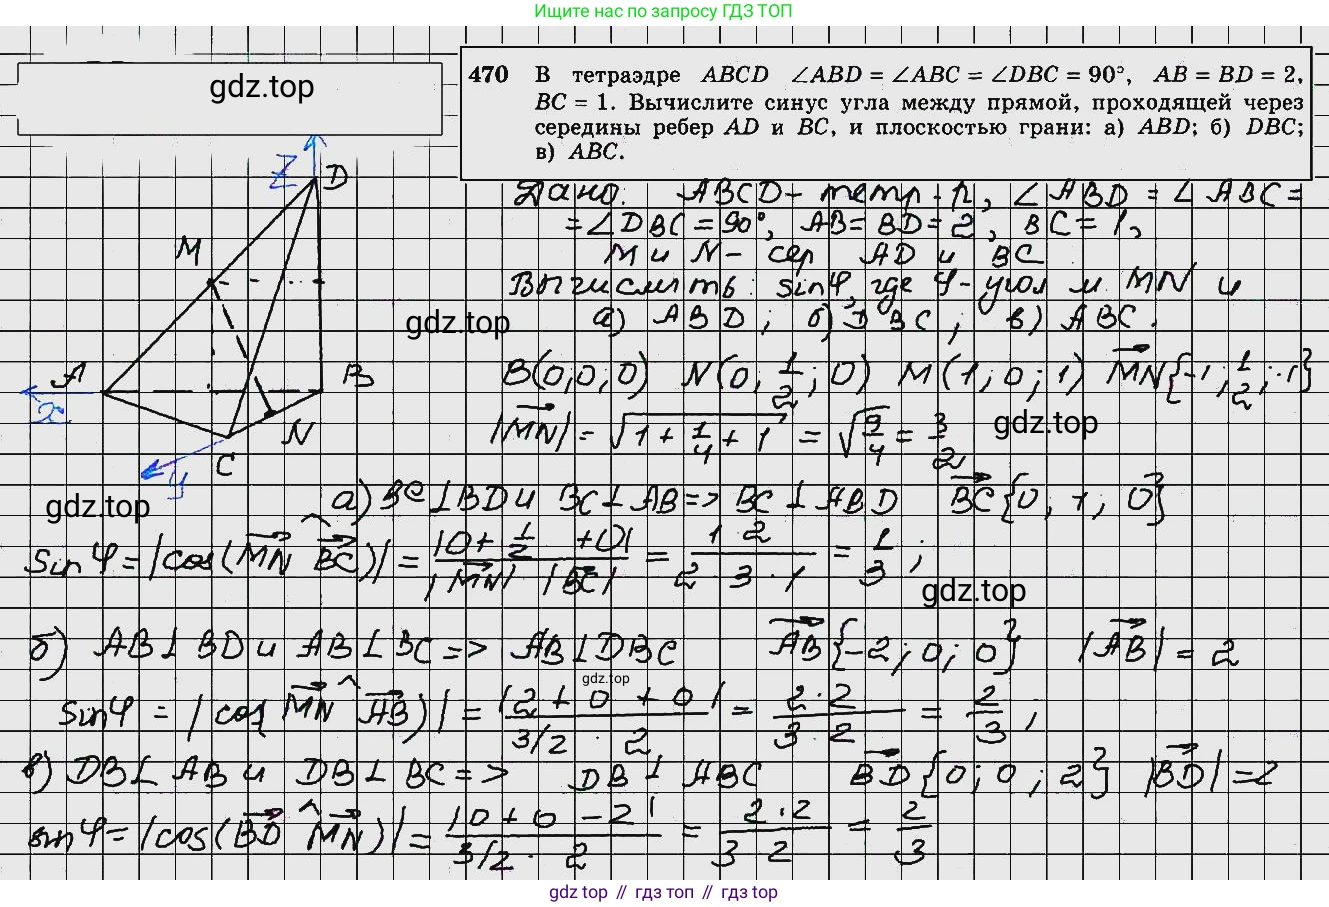 Ищите нас по запросу ГДЗ ТОП
gdz.top
470 В тетраэдре ABCD ∠ABD = ∠ABC = ∠DBC = 90°, AB = BD = 2,
BC = 1. Вычислите синус угла между прямой, проходящей через
середины ребер AD и BC, и плоскостью грани: а) ABD; б) DBC;
в) ABC.
Z D
Дано: ABCD - тетр-р, ∠ABD = ∠ABC =
= ∠DBC = 90°, AB = BD = 2, BC = 1,
M
M и N - сер AD и BC
Вычислить: sinφ, где φ - угол м. MN и
gdz.top
а) ABD; б) DBC; в) ABC.
A B
x
B(0,0,0) N(0; 1/2; 0) M(1; 0; 1) MN{-1; 1/2; -1}
N
|MN| = √(1 + 1/4 + 1) = √(9/4) = 3/2
gdz.top
C
y
gdz.top
а) BC ⊥ BD и BC ⊥ AB => BC ⊥ ABD BC{0, 1, 0}
sinφ = |cos(MN^BC)| = |0 + 1/2 + 0| / |MN| |BC| = 1·2 / 2·3·1 = 1/3;
gdz.top
б) AB ⊥ BD и AB ⊥ BC => AB ⊥ DBC AB{-2; 0; 0} |AB| = 2
gdz.top
sinφ = |cos(MN^AB)| = |2 + 0 + 0| / 3/2 · 2 = 2·2 / 3·2 = 2/3;
в) DB ⊥ AB и DB ⊥ BC => DB ⊥ ABC BD{0; 0; 2} |BD| = 2
sinφ = |cos(BD^MN)| = |0 + 0 - 2| / 3/2 · 2 = 2·2 / 3·2 = 2/3
gdz top // гдз топ // гдз top